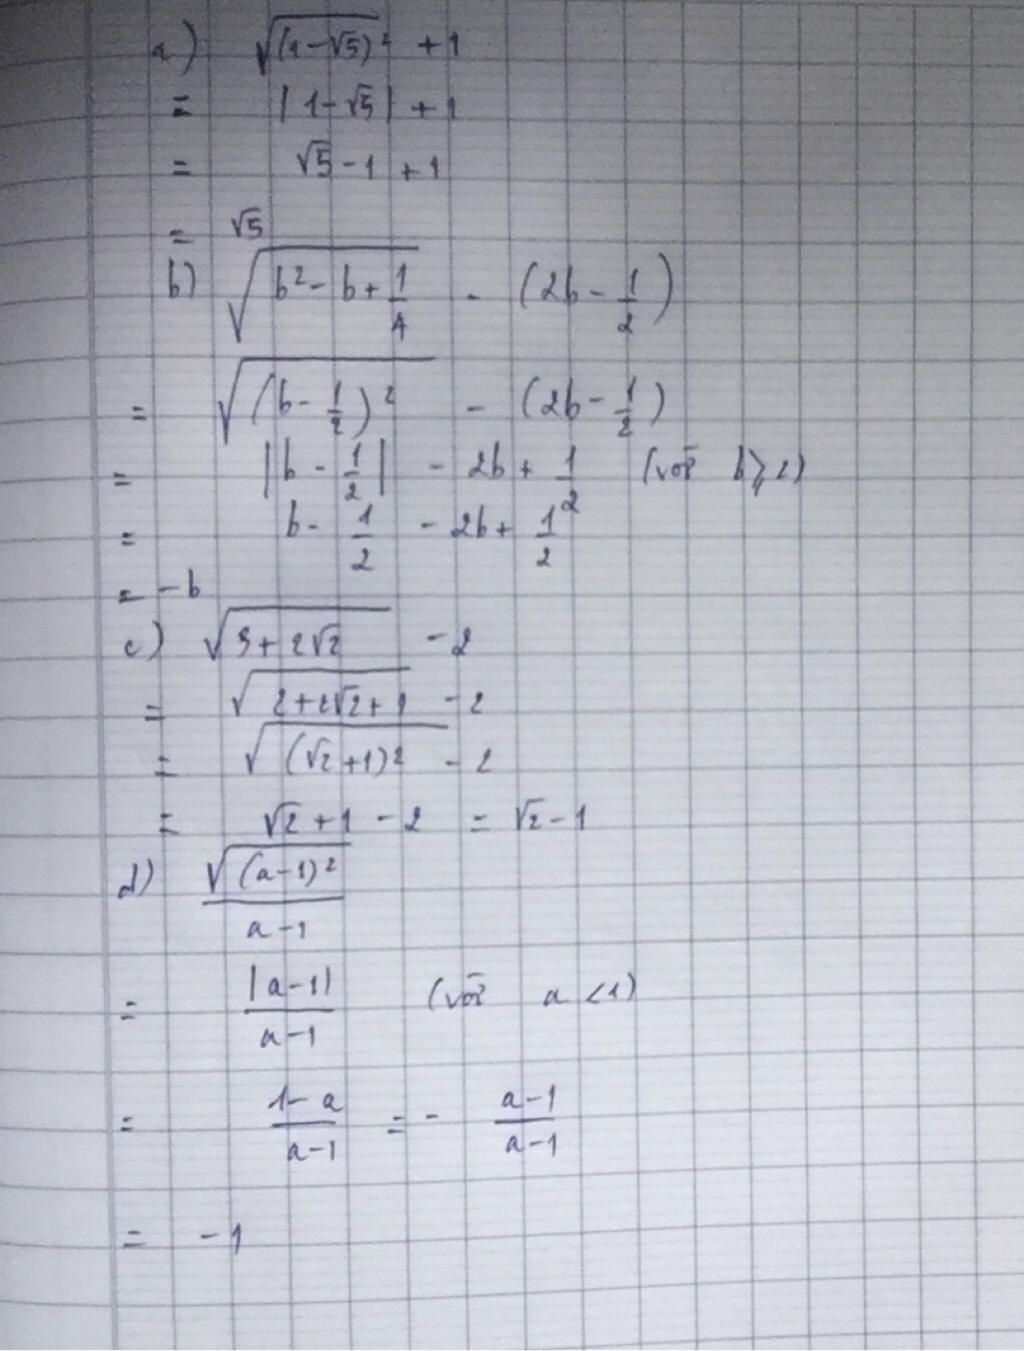 a) √(1-√5)² + 1
= |1-√5| + 1
= √5 - 1 + 1
= √5
b) √(b² - b + 1/4) - (2b - 1/2)
= √(b - 1/2)² - (2b - 1/2)
= |b - 1/2| - 2b + 1/2 (với b ⩾ 2)
= b - 1/2 - 2b + 1/2
= -b
c) √(3 + 2√2) - 2
= √(2 + 2√2 + 1) - 2
= √(√2 + 1)² - 2
= √2 + 1 - 2 = √2 - 1
d) √(a-1)² / a-1
= |a-1| / a-1 (với a < 1)
= 1-a / a-1 = - a-1 / a-1
= -1